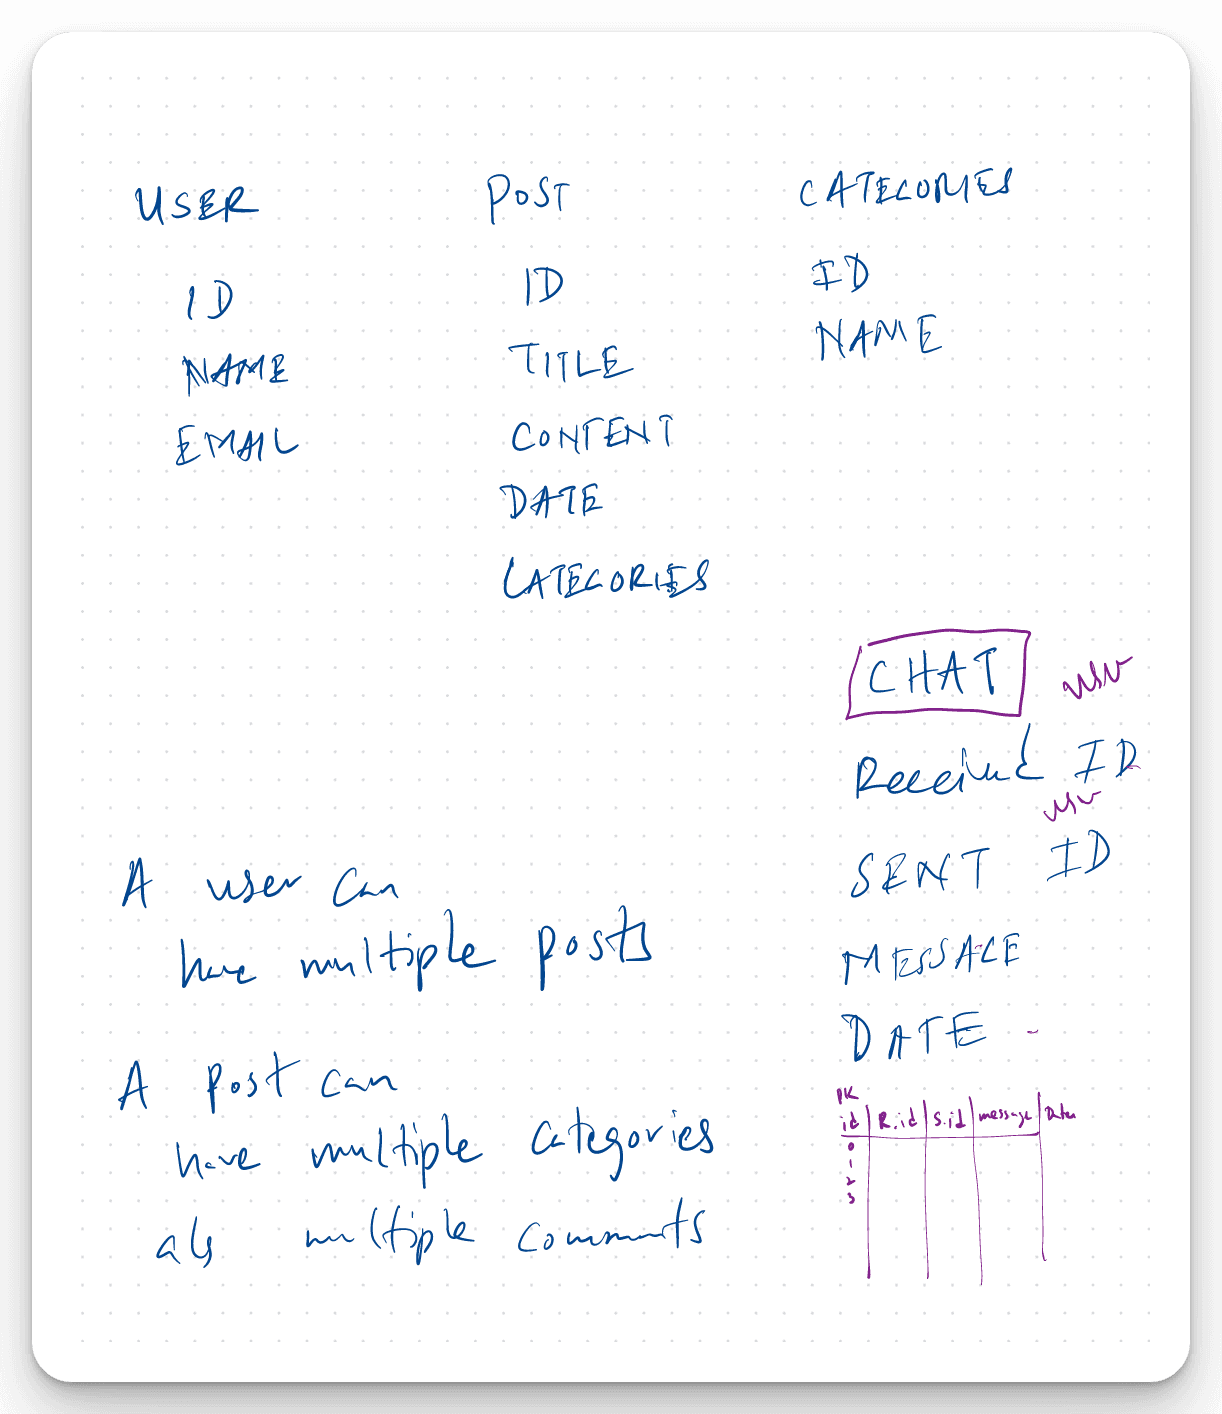 USER
ID
NAME
EMAIL
POST
ID
TITLE
CONTENT
DATE
CATEGORIES
CATEGORIES
ID
NAME
CHAT
usr
Received ID
usr
SENT ID
MESSAGE
DATE -
PK
id R.id S.id message Date
0
1
2
3
A user can
have multiple posts
A post can
have multiple categories
als multiple comments